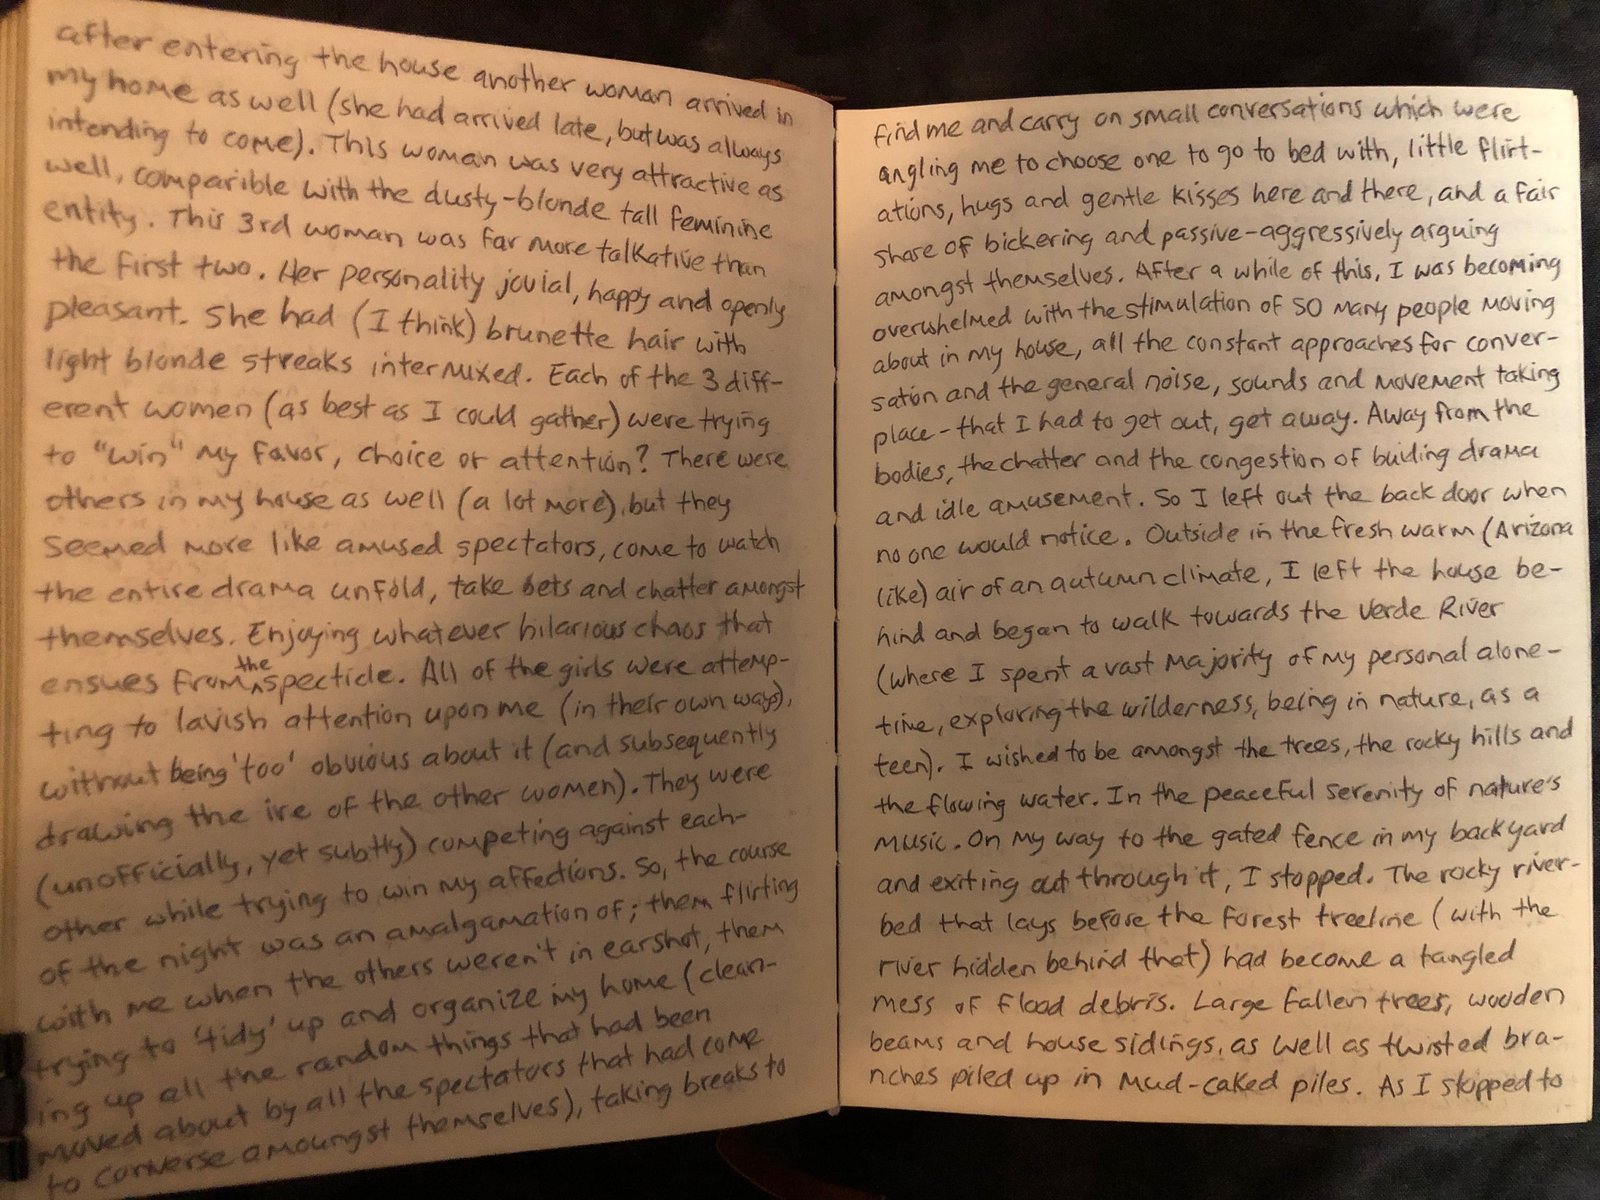 after entering the house another woman arrived in
my home as well (she had arrived late, but was always
intending to come). This woman was very attractive as
well, comparible with the dusty-blonde tall feminine
entity. This 3rd woman was far more talkative than
the first two. Her personality jovial, happy and openly
pleasant. She had (I think) brunette hair with
light blonde streaks intermixed. Each of the 3 diff-
erent women (as best as I could gather) were trying
to "win" my favor, choice or attention? There were
others in my house as well (a lot more), but they
seemed more like amused spectators, come to watch
the entire drama unfold, take bets and chatter amongst
themselves. Enjoying whatever hilarious chaos that
ensues from the specticle. All of the girls were attemp-
ting to lavish attention upon me (in their own ways),
without being 'too' obvious about it (and subsequently
drawing the ire of the other women). They were
(unofficially, yet subtly) competing against each-
other while trying to win my affections. So, the course
of the night was an amalgamation of; them flirting
with me when the others weren't in earshot, them
trying to 'tidy' up and organize my home (clean-
ing up all the random things that had been
moved about by all the spectators that had come
to converse amoungst themselves), taking breaks to
find me and carry on small conversations which were
angling me to choose one to go to bed with, little flirt-
ations, hugs and gentle kisses here and there, and a fair
share of bickering and passive-aggressively arguing
amongst themselves. After a while of this, I was becoming
overwhelmed with the stimulation of SO many people moving
about in my house, all the constant approaches for conver-
sation and the general noise, sounds and movement taking
place - that I had to get out, get away. Away from the
bodies, the chatter and the congestion of buiding drama
and idle amusement. So I left out the back door when
no one would notice. Outside in the fresh warm (Arizona
like) air of an autumn climate, I left the house be-
hind and began to walk towards the Verde River
(where I spent a vast majority of my personal alone-
time, exploring the wilderness, being in nature, as a
teen). I wished to be amongst the trees, the rocky hills and
the flowing water. In the peaceful serenity of nature's
music. On my way to the gated fence in my backyard
and exiting out through it, I stopped. The rocky river-
bed that lays before the forest treeline (with the
river hidden behind that) had become a tangled
mess of flood debris. Large fallen trees, wooden
beams and house sidings, as well as twisted bra-
nches piled up in mud-caked piles. As I stopped to